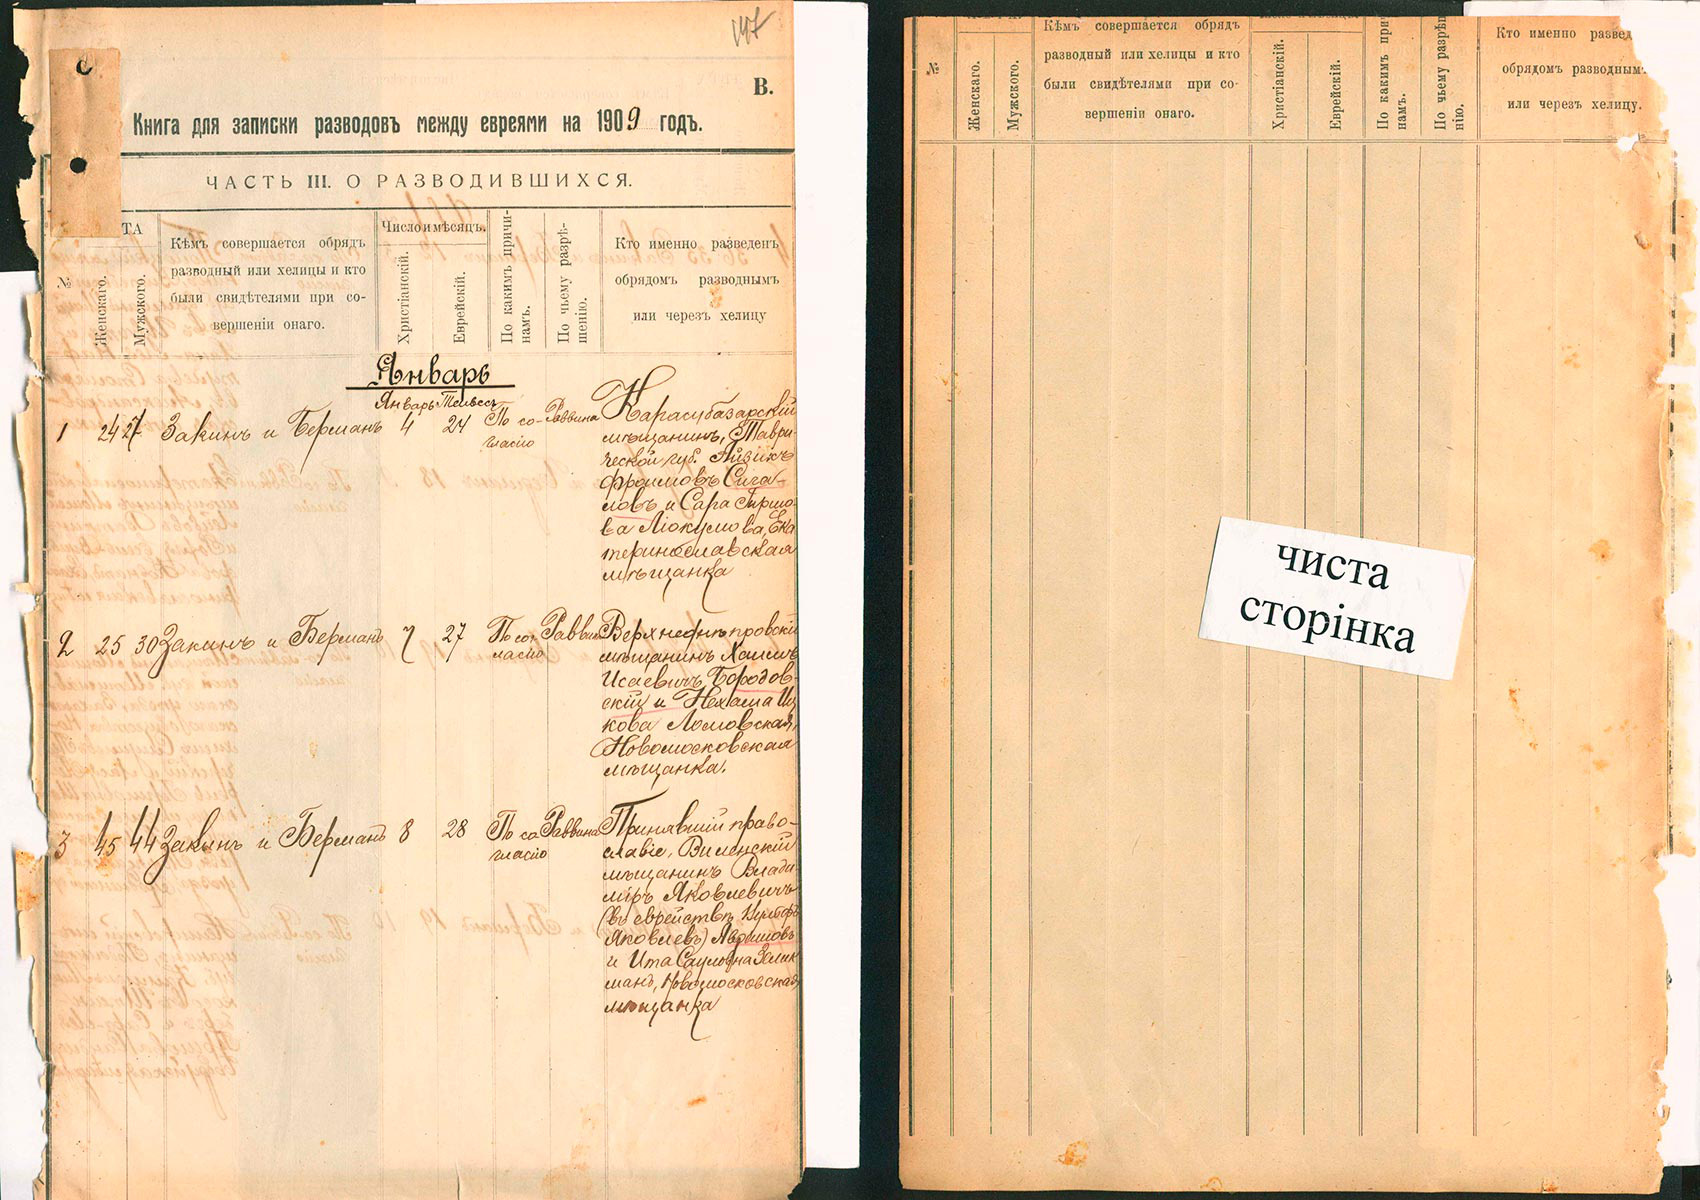 147
В.
Книга для записки разводовъ между евреями на 1909 годъ.
ЧАСТЬ III. О РАЗВОДИВШИХСЯ.
№
ТА
Женскаго.
Мужского.
Кѣмъ совершается обрядъ
разводный или хелицы и кто
были свидѣтелями при со-
вершеніи онаго.
Число и мѣсяцъ.
Христіанскій.
Еврейскій.
По какимъ причи-
намъ.
По чьему разрѣ-
шенію.
Кто именно разведенъ
обрядомъ разводнымъ
или черезъ хелицу
Январь
Январь Тейвесъ
1 24 27 Закинъ и Берманъ 4 24 По со-
гласію
Раввина
Карасубазарскій
мѣщанинъ, Таври-
ческой губ. Айзикъ
Фроимовъ Сига-
ловъ и Сара Гиршо-
ва Люкумова, Ека
теринославская
мѣщанка
2 25 30 Закинъ и Берманъ 7 27 По сог
ласію
Раввина
Верхнеднѣпровскій
мѣщанинъ Хаимъ
Исаевичъ Бородов-
скій и Нехама Иц
кова Ломовская,
Новомосковская
мѣщанка.
3 45 44 Закинъ и Берманъ 8 28 По со
гласію
Раввина
Принявшій право-
славіе, Виленскій
мѣщанинъ Влади-
міръ Яковлевичъ
(въ еврействѣ
Яковлевъ) Аврамовъ
и Ита Сауловна Зелик
манъ, Новомосковская
мѣщанка
№
Женскаго.
Мужского.
Кѣмъ совершается обрядъ
разводный или хелицы и кто
были свидѣтелями при со-
вершеніи онаго.
Христіанскій.
Еврейскій.
По какимъ при
намъ.
По чьему разрѣ
нію.
Кто именно развед
обрядомъ разводным
или черезъ хелицу.
чиста
сторінка